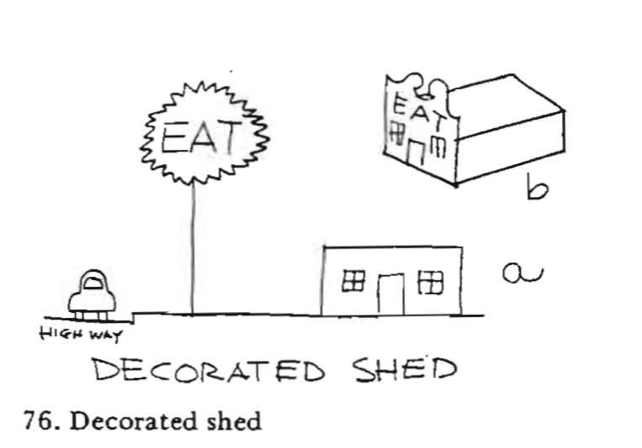 EAT
EAT
b
a
HIGHWAY
DECORATED SHED
76. Decorated shed